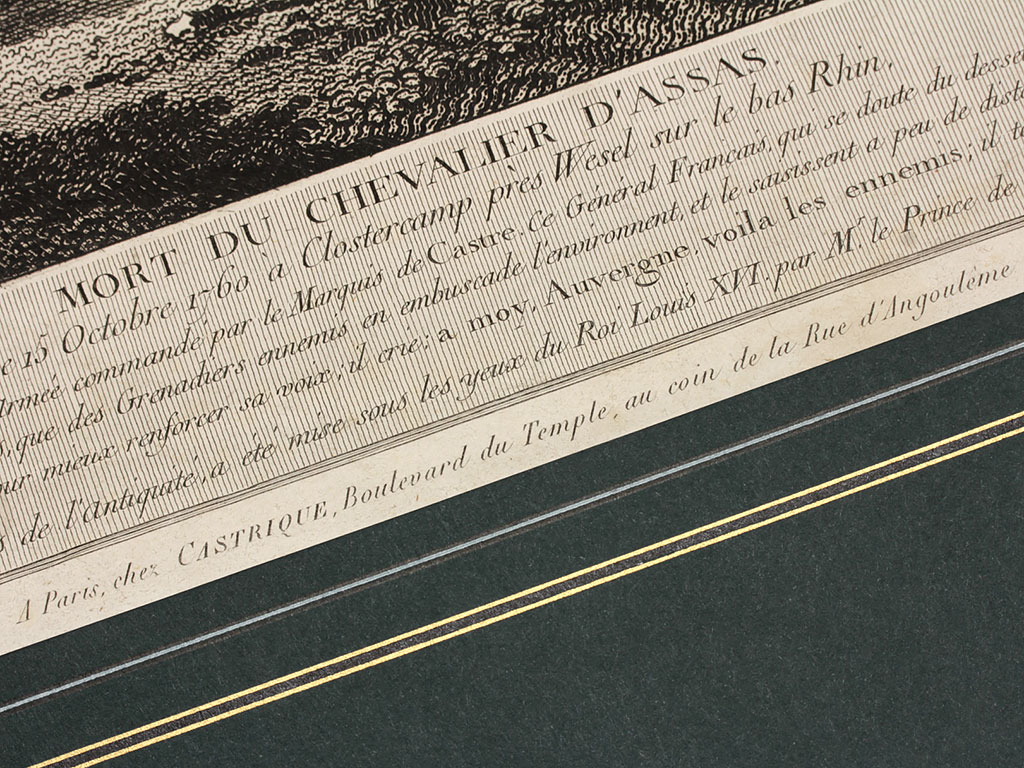 MORT DU CHEVALIER D'ASSAS.
15 Octobre 1760 à Clostercamp près Wesel sur le bas Rhin,
Armée commandé par le Marquis de Castre. Ce Général Français, qui se doute du
que des Grenadiers ennemis en embuscade l'environment, et le saisissent a peu de
mieux renforcer sa voux; il crie; a moy, Auvergne, voila les ennemis; il
de l'Antiquité, a eté mise sous les yeux du Roi Louis XVI. par M. le Prince de
A Paris, chez CASTRIQUE, Boulevard du Temple, au coin de la Rue d'Angoulême